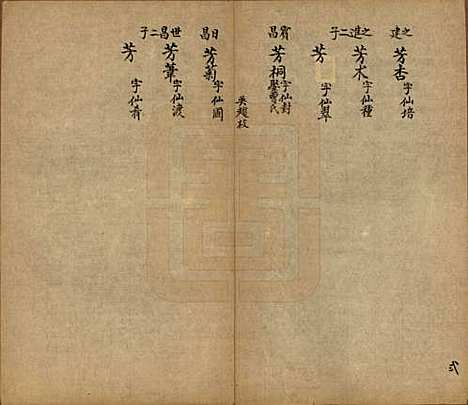 之建 芳杏 字仙培
之進二子 芳木 字仙種
芳 字仙翠
賓昌 芳桐 字仙封 娶曹氏
吴 枝
日昌 芳菊 字仙圃
世昌二子 芳葦 字仙渡
芳 字仙肴